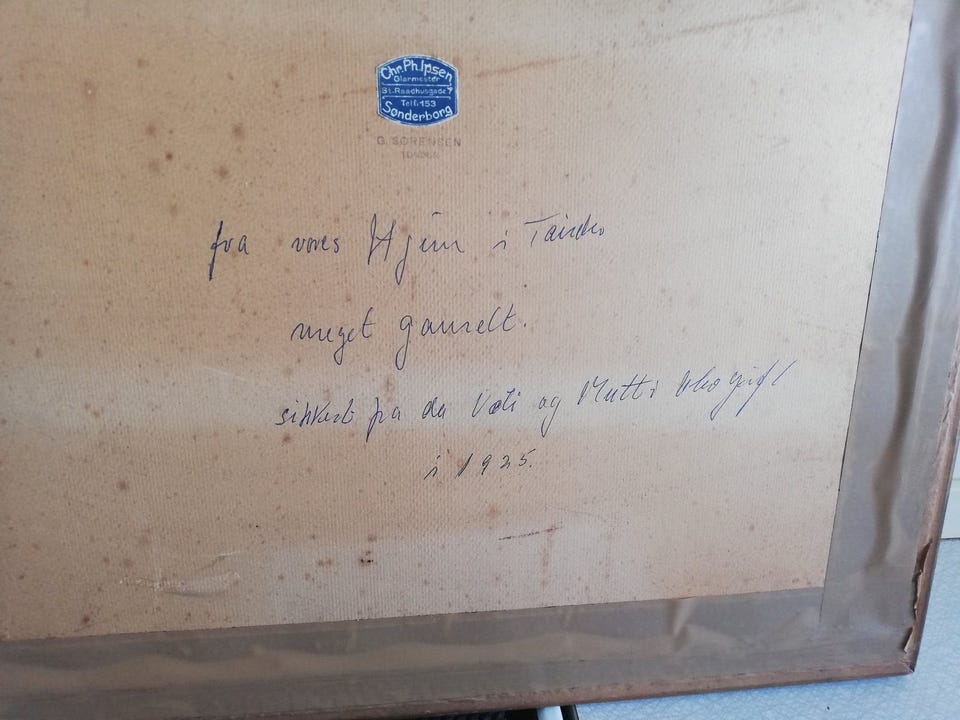 Chr. Ph. Ipsen
Glarmester
St. Raadhusgade 7
Telf. 153
Sønderborg
G. SØRENSEN
fra vores Hjem i
meget gammelt.
sikkert fra da Vati og Mutti
i 1925.